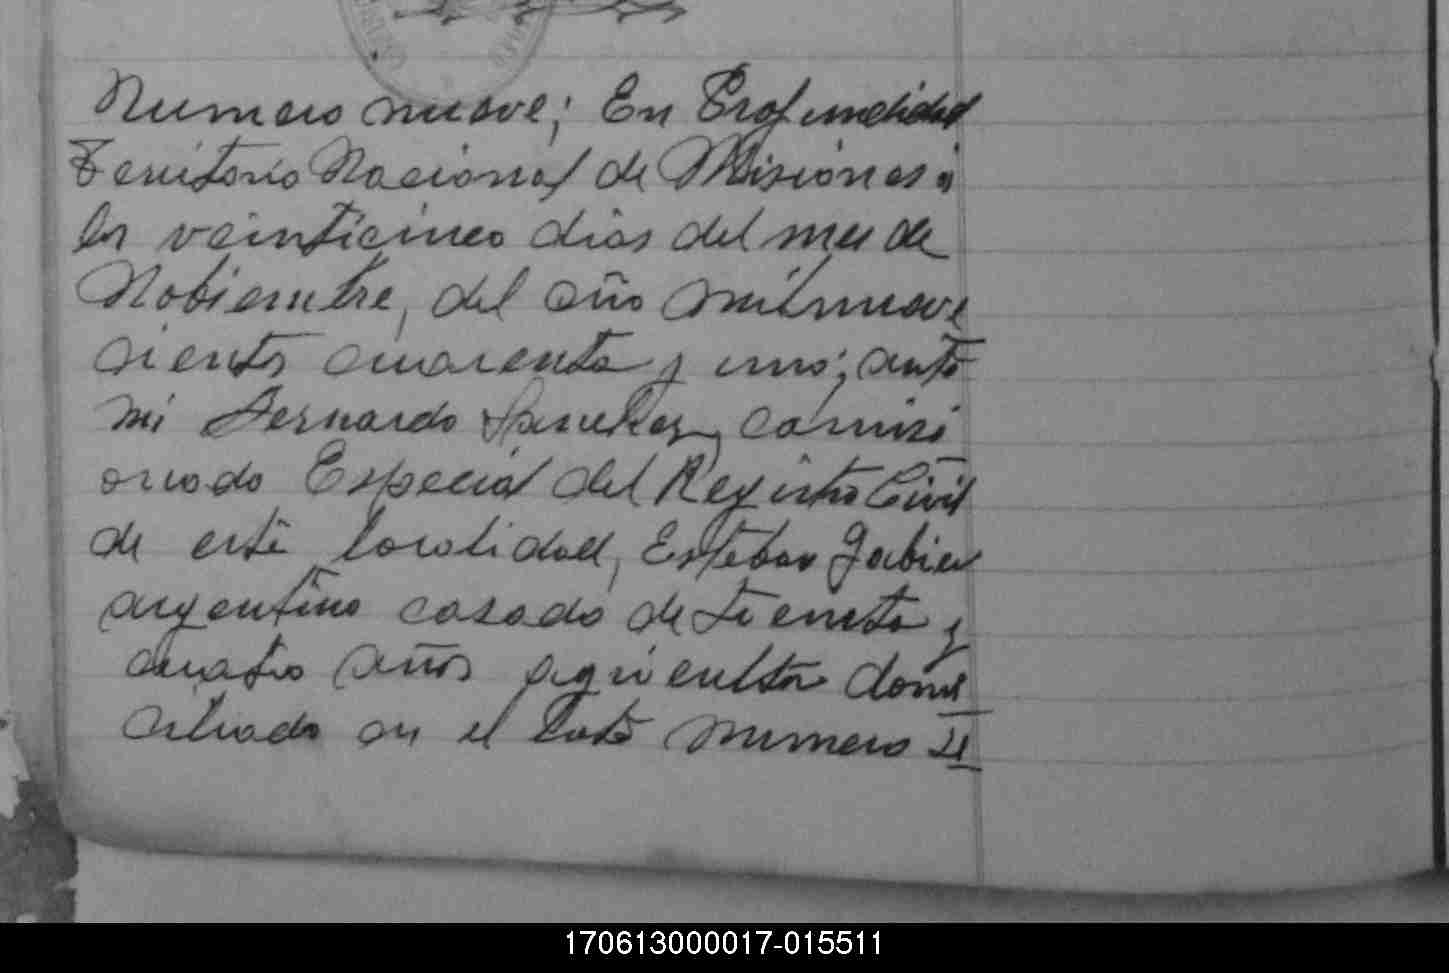 Numero nueve; En Profundidad
Territorio Nacional de Misiones a
los veinticinco dias del mes de
Nobiembre, del año mil nueve
cientos cuarenta y uno; ante
mi Bernardo Sanchez, comisi
onado Especial del Registro Civil
de este localidad, Esteban Gabier
argentino casado de trienta y
cuatro años agricultor domi
ciliado en el lote numero
170613000017-015511